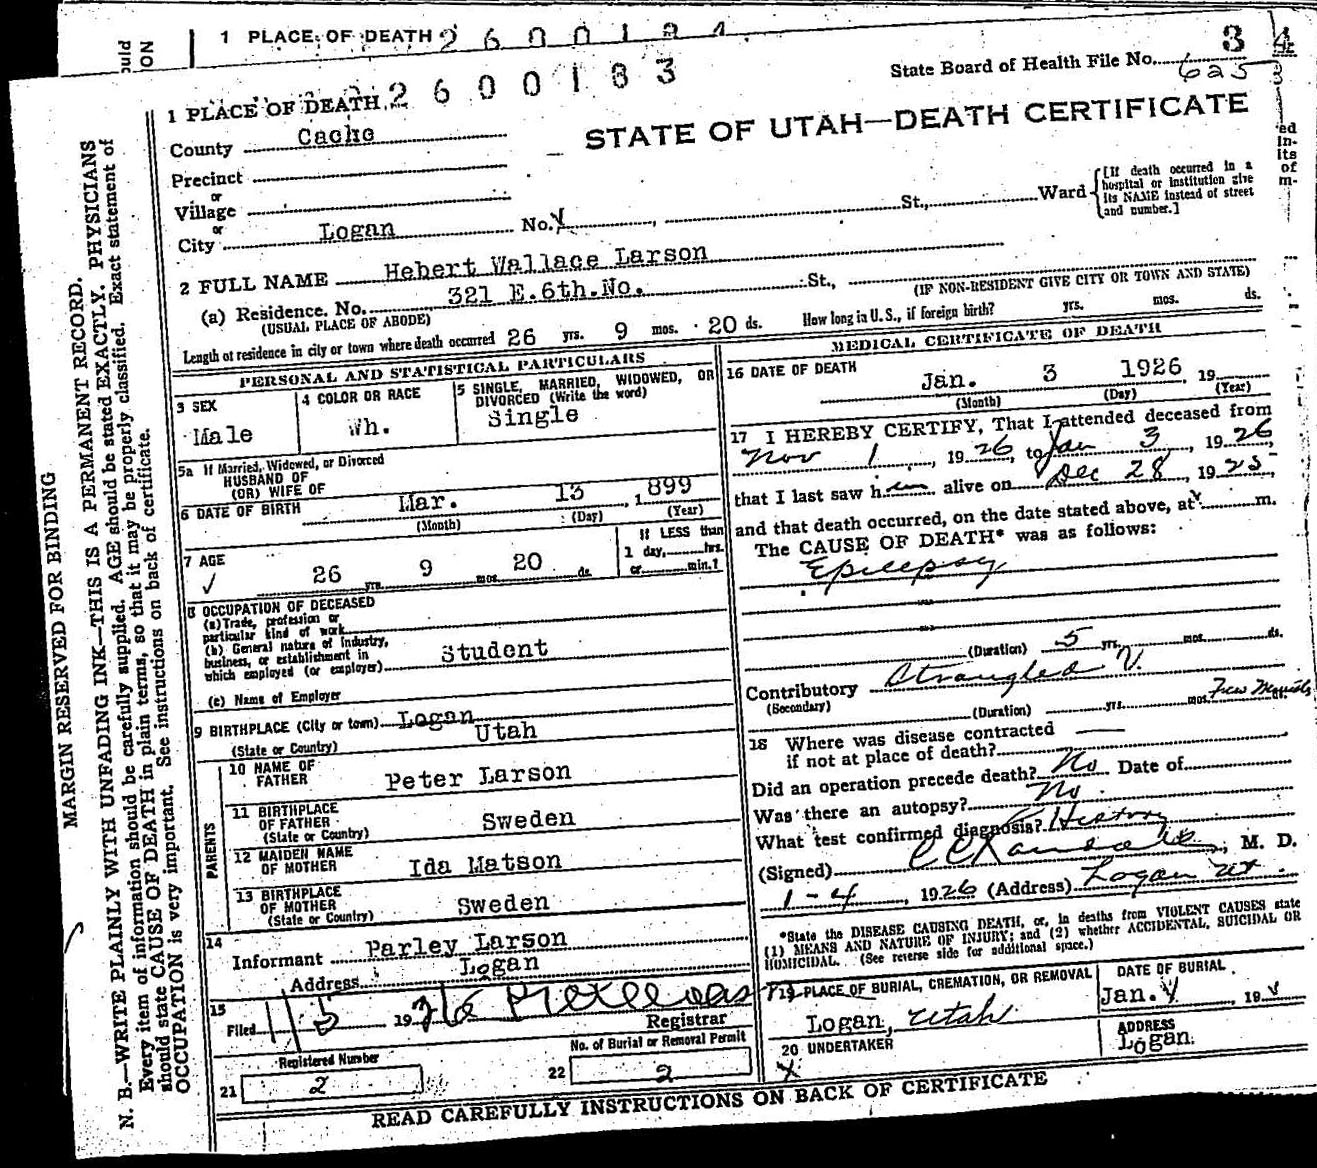 1 PLACE OF DEATH 2600184
3 4
State Board of Health File No. 625
1 PLACE OF DEATH 2600183
STATE OF UTAH—DEATH CERTIFICATE
County Cache
Precinct
or
Village
or
City Logan No. St., Ward [If death occurred in a hospital or institution give its NAME instead of street and number.]
2 FULL NAME Hebert Wallace Larson
(a) Residence. No. 321 E.6th.No. St., (IF NON-RESIDENT GIVE CITY OR TOWN AND STATE)
(USUAL PLACE OF ABODE)
Length of residence in city or town where death occurred 26 yrs. 9 mos. 20 ds. How long in U. S., if foreign birth? yrs. mos. ds.
PERSONAL AND STATISTICAL PARTICULARS
3 SEX
Male
4 COLOR OR RACE
Wh.
5 SINGLE, MARRIED, WIDOWED, OR
DIVORCED (Write the word)
Single
5a If Married, Widowed, or Divorced
HUSBAND OF
(OR) WIFE OF
6 DATE OF BIRTH Mar. 13 1899
(Month) (Day) (Year)
7 AGE
26 yrs. 9 mos. 20 ds.
If LESS than
1 day, hrs.
or min.?
8 OCCUPATION OF DECEASED
(a) Trade, profession or
particular kind of work
(b) General nature of industry,
business, or establishment in
which employed (or employer) Student
(c) Name of Employer
9 BIRTHPLACE (City or town) Logan
(State or Country) Utah
PARENTS
10 NAME OF
FATHER Peter Larson
11 BIRTHPLACE
OF FATHER Sweden
(State or Country)
12 MAIDEN NAME
OF MOTHER Ida Matson
13 BIRTHPLACE
OF MOTHER Sweden
(State or Country)
14
Informant Parley Larson
Address Logan
15
Filed 1/5 1926
Registrar
Registered Number
21 2
No. of Burial or Removal Permit
22 2
MEDICAL CERTIFICATE OF DEATH
16 DATE OF DEATH
Jan. 3 1926, 19
(Month) (Day) (Year)
17 I HEREBY CERTIFY, That I attended deceased from
Nov 1, 1926, to Jan 3, 1926,
that I last saw him alive on Dec 28, 1925,
and that death occurred, on the date stated above, at m.
The CAUSE OF DEATH* was as follows:
Epilepsy
(Duration) 5 yrs. mos. ds.
Contributory Strangled
(Secondary)
(Duration) yrs. mos. Few
18 Where was disease contracted
if not at place of death?
Did an operation precede death? No Date of
Was there an autopsy? No.
What test confirmed diagnosis? History
(Signed) , M. D.
1-4, 1926 (Address) Logan Ut
*State the DISEASE CAUSING DEATH, or, in deaths from VIOLENT CAUSES state
(1) MEANS AND NATURE OF INJURY; and (2) whether ACCIDENTAL, SUICIDAL OR
HOMICIDAL. (See reverse side for additional space.)
19 PLACE OF BURIAL, CREMATION, OR REMOVAL
Logan, Utah
DATE OF BURIAL
Jan. 19
20 UNDERTAKER
ADDRESS
Logan.
READ CAREFULLY INSTRUCTIONS ON BACK OF CERTIFICATE
MARGIN RESERVED FOR BINDING
N. B.—WRITE PLAINLY WITH UNFADING INK—THIS IS A PERMANENT RECORD.
Every item of information should be carefully supplied. AGE should be stated EXACTLY. PHYSICIANS
should state CAUSE OF DEATH in plain terms, so that it may be properly classified. Exact statement of
OCCUPATION is very important. See instructions on back of certificate.